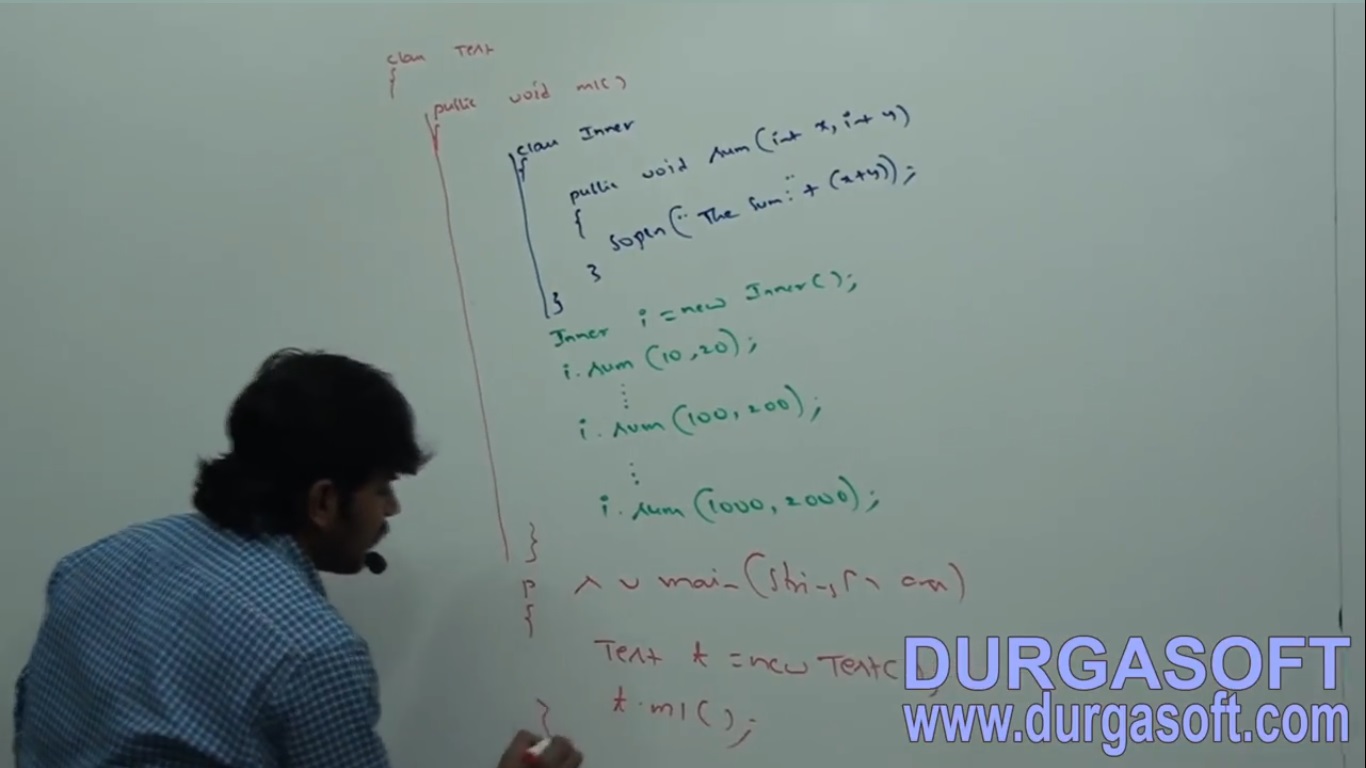 class Test
{
public void m1()
{
class Inner
{
public void sum(int x, int y)
{
Sopln("The Sum:"+(x+y));
}
}
Inner i=new Inner();
i.sum(10,20);
⋮
i.sum(100,200);
⋮
i.sum(1000,2000);
}
p s v main(String[] args)
{
Test t=new Test();
t.m1();
}
DURGASOFT
www.durgasoft.com